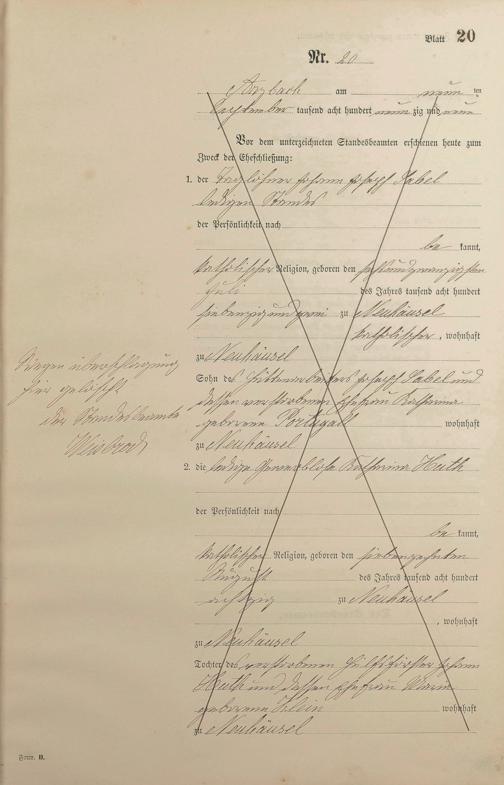 Blatt 20
Nr. 20
Arzbach am neun ten
September tausend acht hundert neun zig und neun
Vor dem unterzeichneten Standesbeamten erschienen heute zum
Zweck der Eheschließung:
1. der Taglöhner Johann Joseph Sabel
ledigen Standes
der Persönlichkeit nach
be kannt,
katholischer Religion, geboren den sechsundzwanzigsten
Juli des Jahres tausend acht hundert
siebenzig und zwei zu Neuhäusel
katholischer, wohnhaft
zu Neuhäusel
Sohn des Hüttenarbeiters Joseph Sabel und
dessen verstorbenen Ehefrau Katharina
geborene wohnhaft
zu Neuhäusel
Wegen
hier gelöscht
der Standesbeamte
2. die ledige Gewerblose Katharina Huth
der Persönlichkeit nach
be kannt,
katholischer Religion, geboren den siebenzehnten
August des Jahres tausend acht hundert
achtzig zu Neuhäusel
, wohnhaft
zu Neuhäusel
Tochter des verstorbenen Hilfsförster Johann
Huth und dessen Ehefrau Maria
geborene Klein wohnhaft
zu Neuhäusel
Form. B.